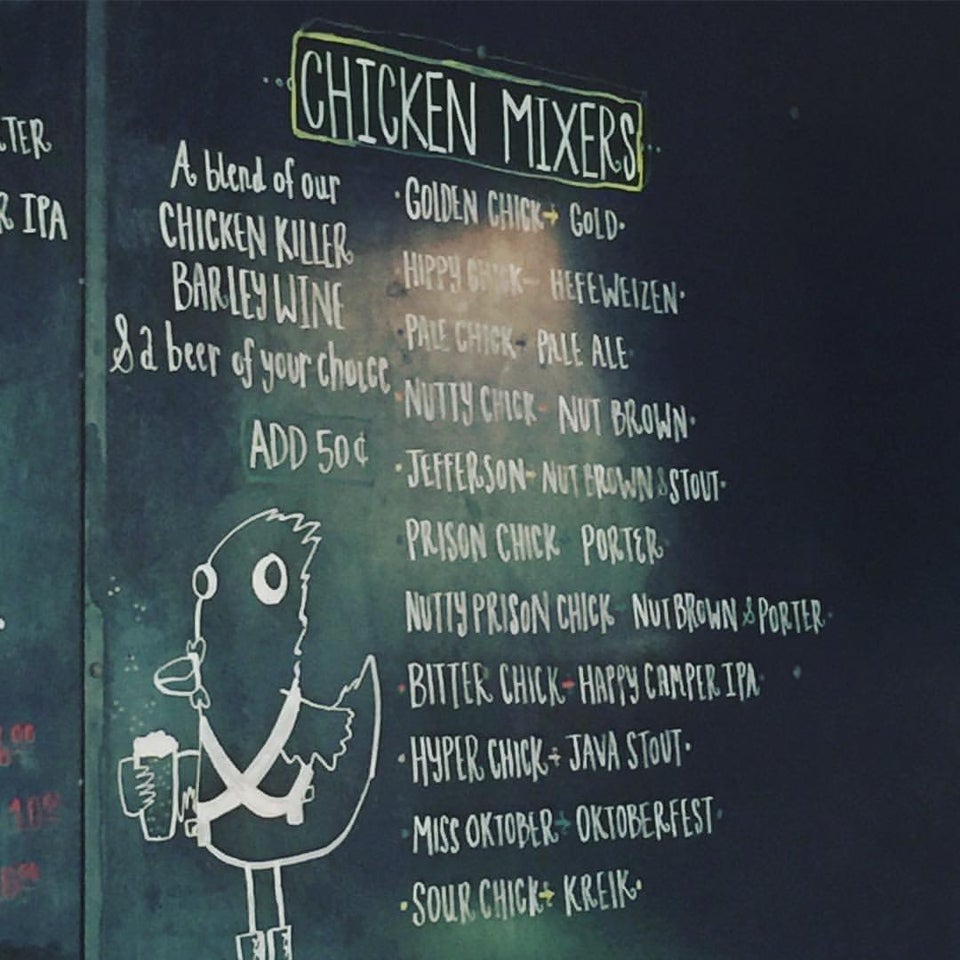 CHICKEN MIXERS
A blend of our
CHICKEN KILLER
BARLEY WINE
& a beer of your choice
ADD 50¢
· GOLDEN CHICK → GOLD ·
HIPPY CHICK - HEFEWEIZEN ·
PALE CHICK - PALE ALE
NUTTY CHICK - NUT BROWN ·
· JEFFERSON - NUT BROWN & STOUT ·
PRISON CHICK PORTER
NUTTY PRISON CHICK - NUT BROWN & PORTER
· BITTER CHICK - HAPPY CAMPER IPA
· HYPER CHICK → JAVA STOUT ·
MISS OKTOBER → OKTOBERFEST
· SOUR CHICK → KREIK ·
TER
R IPA